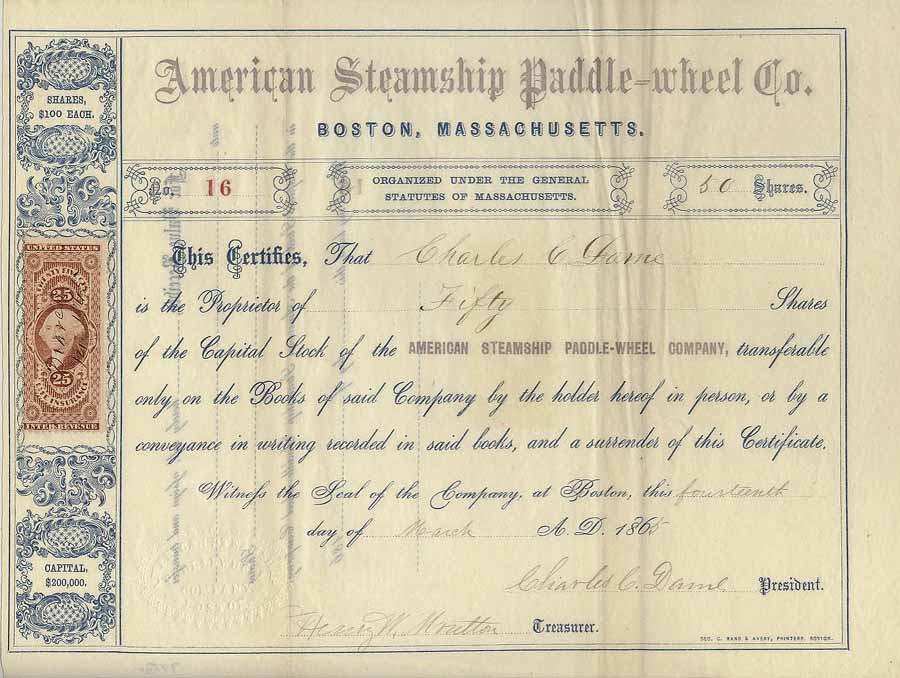 American Steamship Paddle-wheel Co.
BOSTON, MASSACHUSETTS.
SHARES,
$100 EACH.
No. 16
ORGANIZED UNDER THE GENERAL
STATUTES OF MASSACHUSETTS.
50 Shares.
This Certifies, That Charles C. Dame
is the Proprietor of Fifty Shares
of the Capital Stock of the AMERICAN STEAMSHIP PADDLE-WHEEL COMPANY, transferable
only on the Books of said Company by the holder hereof in person, or by a
conveyance in writing recorded in said books, and a surrender of this Certificate.
Witness the Seal of the Company, at Boston, this fourteenth
day of March A. D. 1865
Charles C. Dame President.
Henry W. Moulton Treasurer.
GEO. C. RAND & AVERY, PRINTERS, BOSTON.
UNITED STATES
TWENTY FIVE CENTS
25
25
LIFE INSURANCE
INTER. REVENUE
CAPITAL,
$200,000.